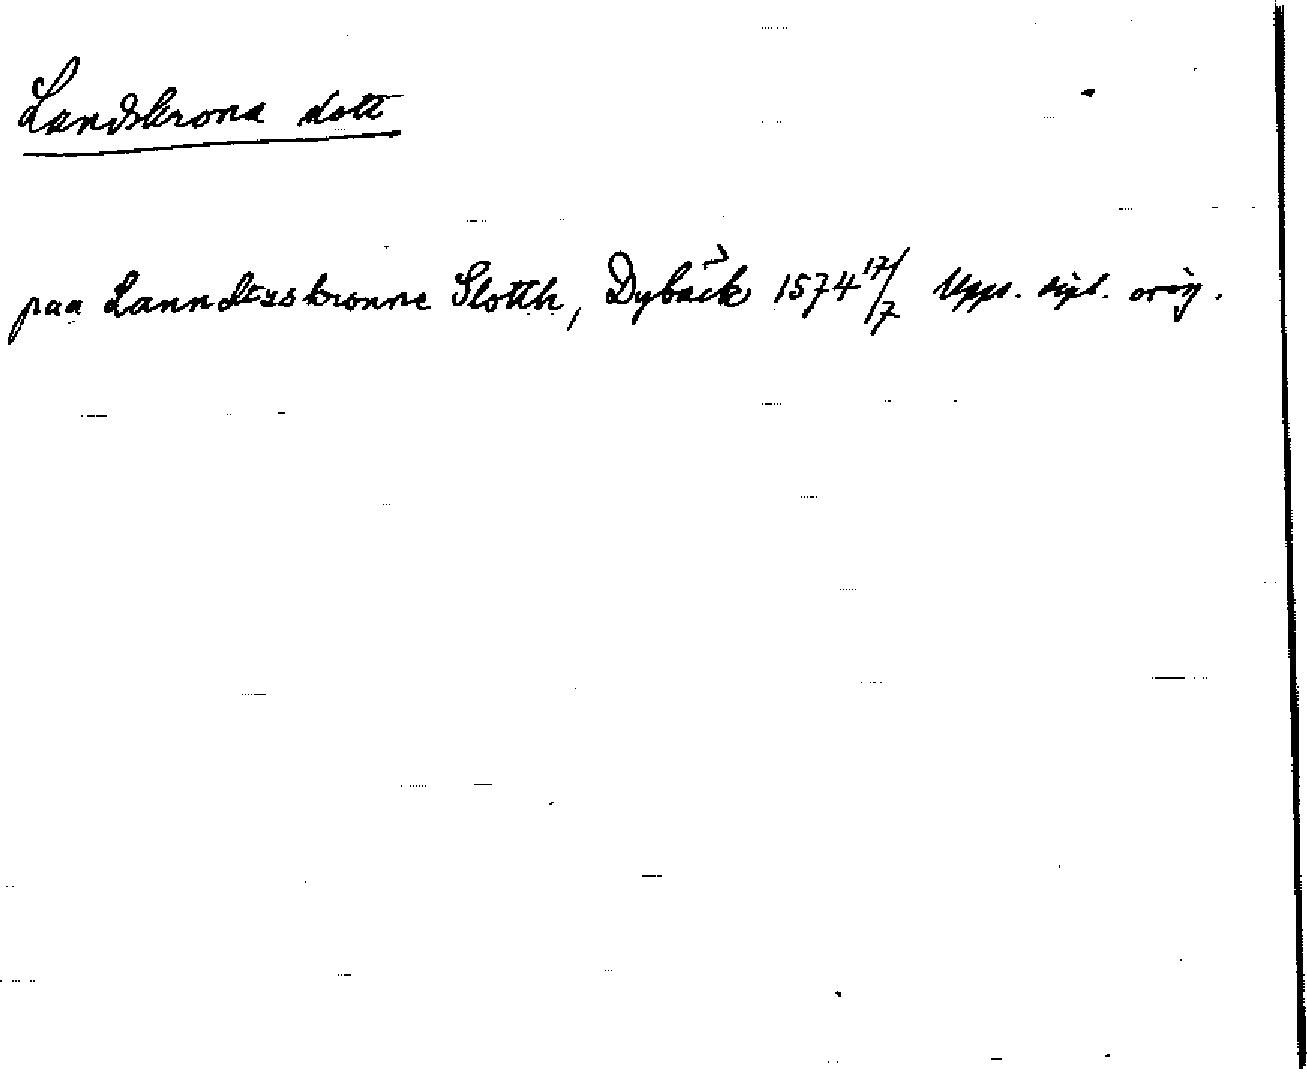 Landskrona slott
paa Lanndtzskronne Slotth, Dybäck 1574 17/7 Upps. dipl. orig.